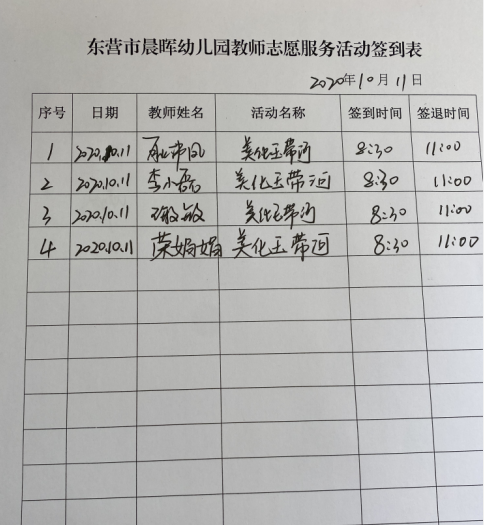 东营市晨晖幼儿园教师志愿服务活动签到表
2020年10月11日
序号 日期 教师姓名 活动名称 签到时间 签退时间
1 2020.10.11 美化玉带河 8:30 11:00
2 2020.10.11 李小磊 美化玉带河 8:30 11:00
3 2020.10.11 敏敏 美化玉带河 8:30 11:00
4 2020.10.11 荣娟娟 美化玉带河 8:30 11:00